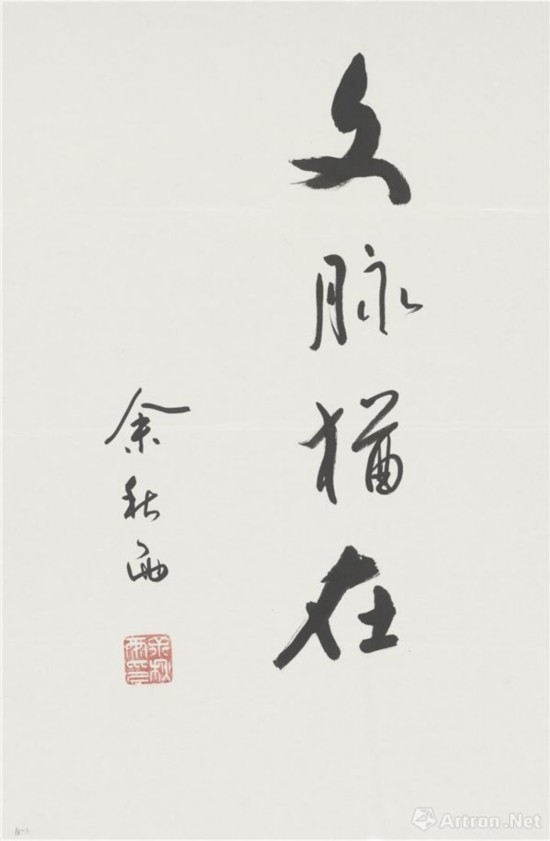 文脉犹在
余秋雨
余秋雨印
Artron.Net